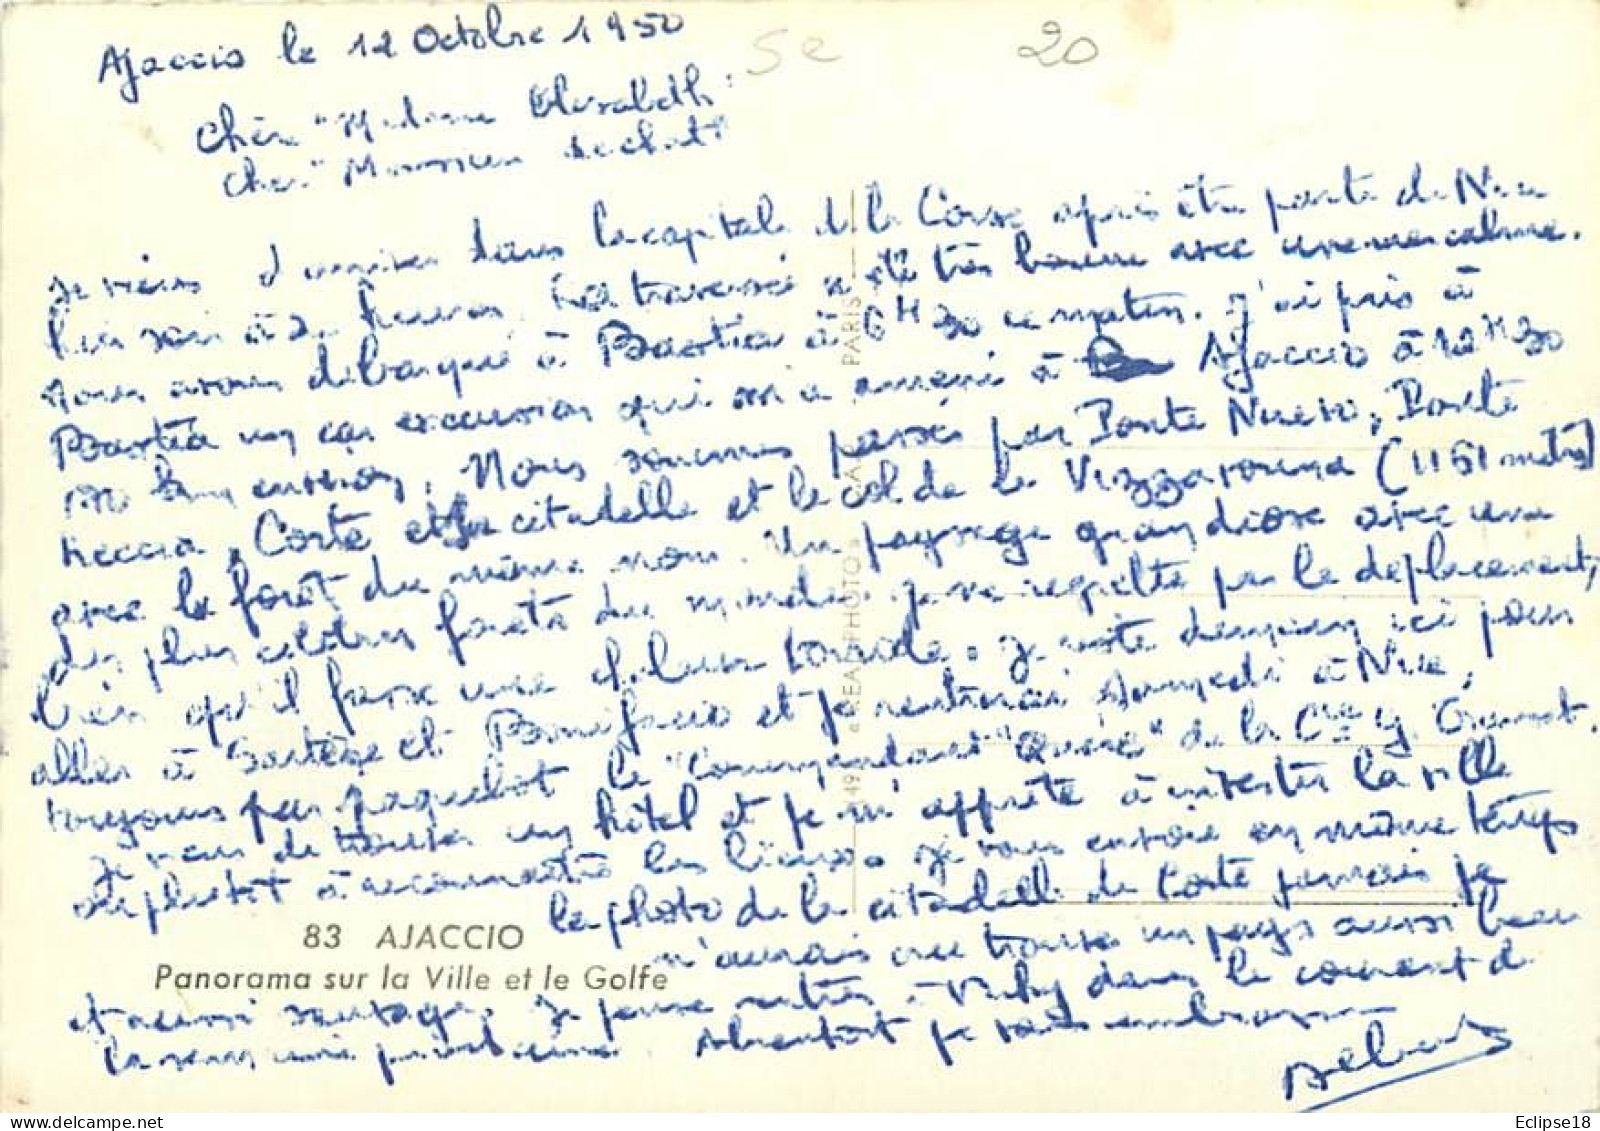 Ajaccio le 12 Octobre 1950
5e 20
Chère "Madame Elisabeth"
Cher "Monsieur
Je viens d'arriver dans la capitale de la Corse après être partie de Nice
hier soir à 20 heures. La traversée a été très bonne avec une mer calme.
Nous avons débarqué à Bastia à 6H30 ce matin. J'ai pris à
Bastia un car excursion qui m'a amené à Ajaccio à 12H30
environ. Nous sommes passés par Ponte Nuevo, Ponte
Leccia, Corte et sa citadelle et le col de la Vizzavona (1161 mètres)
avec la forêt du même nom. Un paysage grandiose avec une
des plus célèbres forêts du monde. Je ne regrette pas le déplacement,
bien qu'il fasse une chaleur torride. Je reste demain ici pour
aller à Sartène et Bonifacio et je rentrerai samedi à Nice,
toujours par paquebot le "Commandant Quéré" de la Cie Gl Transat.
Je viens de trouver un hôtel et je m'apprête à visiter la ville
ou plutôt à reconnaître les lieux. Je vous envoie en même temps
la photo de la citadelle de Corte jamais je
n'aurais cru trouver un pays aussi beau
83 AJACCIO
Panorama sur la Ville et le Golfe
et aussi sauvage. Je pense rentrer à Vichy dans le courant de
la semaine prochaine. je vous embrasse
Albert
49 « REAL-PHOTO » PARIS
Eclipse18